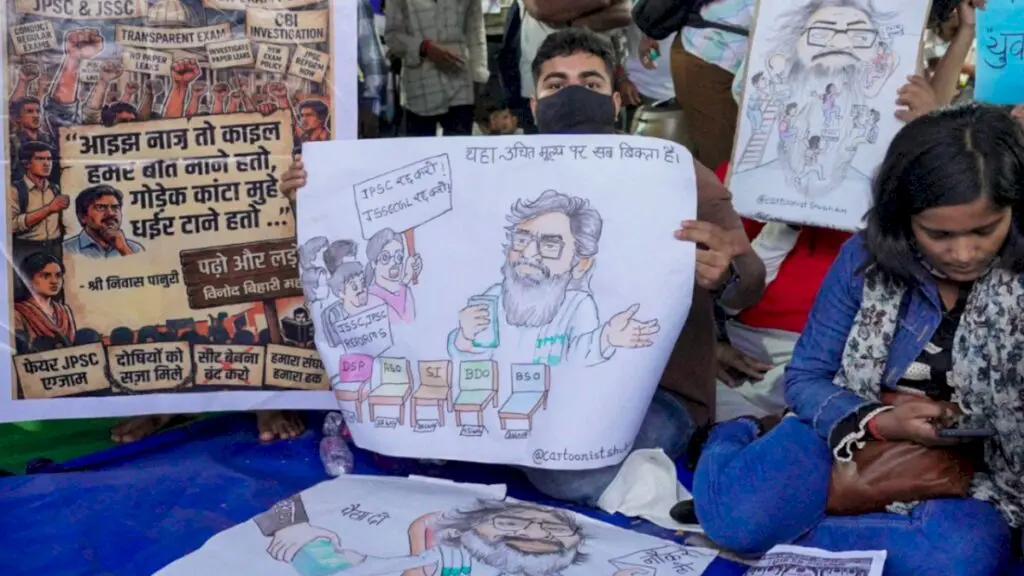 JPSC & JSSC
CONDUCT
REGULAR
EXAMS
TRANSPARENT EXAM
CBI
INVESTIGATION
NO PAPER
INVESTIGATE
PAPER LEAKS
NEW
EXAM
POLICY
REFORM
NOW
“आइझ नाज़ तो काइल
हमर बात नाने हतो,
गोड़ेक कांटा मुहे
धईर टाने हतो ...”
- श्री निवास पानुरी
पढ़ो और लड़ो
विनोद बिहारी
फेयर JPSC
एग्जाम
दोषियों को
सज़ा मिले
सीट बेचना
बंद करो
हमारा संघर्ष
हमारा हक
यहा उचित मूल्य पर सब बिकता है।
JPSC रद्द करो!
JSSCCGL रद्द करो!
JSSC, JPSC
REFORMS
DSP
RSO
SI
BDO
BSO
@cartoonistshu
@cartoonistshubham
पैसा दो